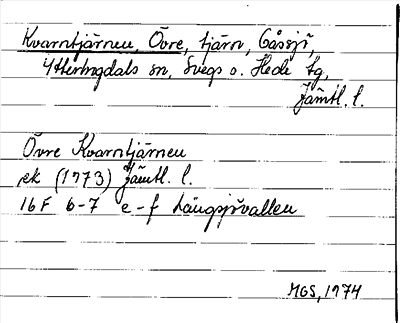 Kvarntjärnen, Övre, tjärn, Gåssjö,
Ytterhogdals sn, Svegs o. Hede tg,
Jämtl. l.
Övre Kvarntjärnen
ek (1973) Jämtl. l.
16F 6-7 e-f Långsjövallen
MGS, 1974